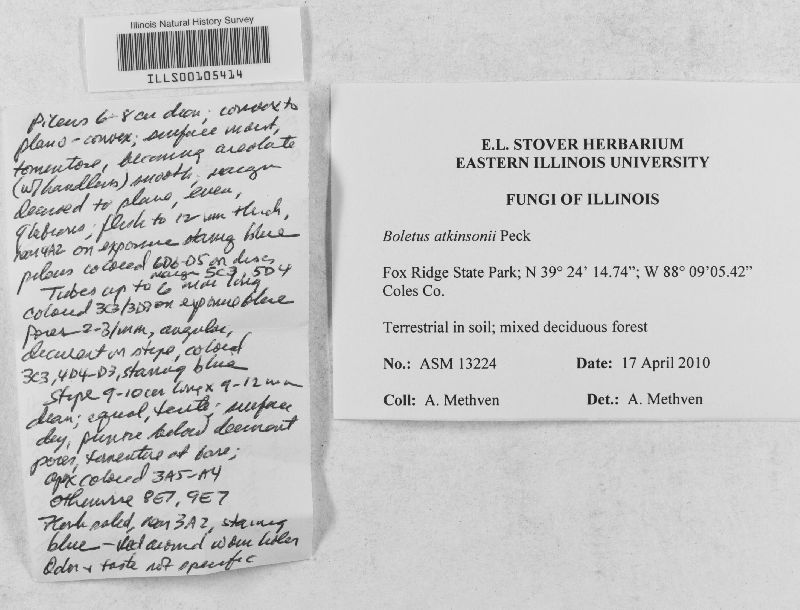 Illinois Natural History Survey
ILLS00105414
Pileus 6-8 cm diam; convex to
plano-convex; surface moist,
tomentose, becoming areolate
(w/handlens) smooth; margin
decurved to plane, even,
glabrous; flesh to 12 mm thick,
near 4A2 on exposure staining blue
pileus colored 6D6-D5 on disc,
margin 5C3, 5D4
Tubes up to 6 mm long
colored 3C3/3D3 on exposure blue
pores 2-3/mm, angular,
decurrent on stipe, colored
3C3, 4D4-D3, staining blue
Stipe 9-10 cm long x 9-12 mm
diam; equal, terete; surface
dry, below decurrent
pores, tomentose at base;
apex colored 3A5-A4
otherwise 8E7, 9E7
Flesh solid, near 3A2, staining
blue - red around worm holes
Odor + taste not specific
E.L. STOVER HERBARIUM
EASTERN ILLINOIS UNIVERSITY
FUNGI OF ILLINOIS
Boletus atkinsonii Peck
Fox Ridge State Park; N 39° 24’ 14.74”; W 88° 09’05.42”
Coles Co.
Terrestrial in soil; mixed deciduous forest
No.: ASM 13224 Date: 17 April 2010
Coll: A. Methven Det.: A. Methven